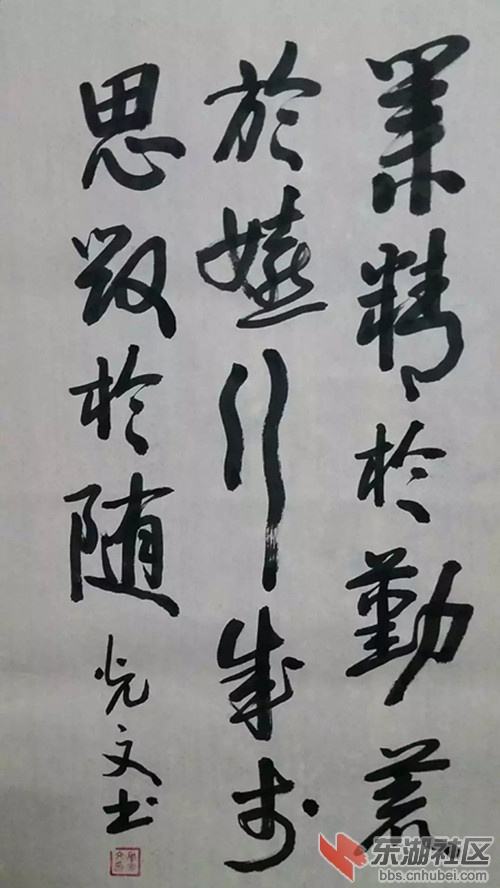 業精於勤荒
於嬉行成於
思毀於随
光文书
东湖社区
bbs.cnhubei.com